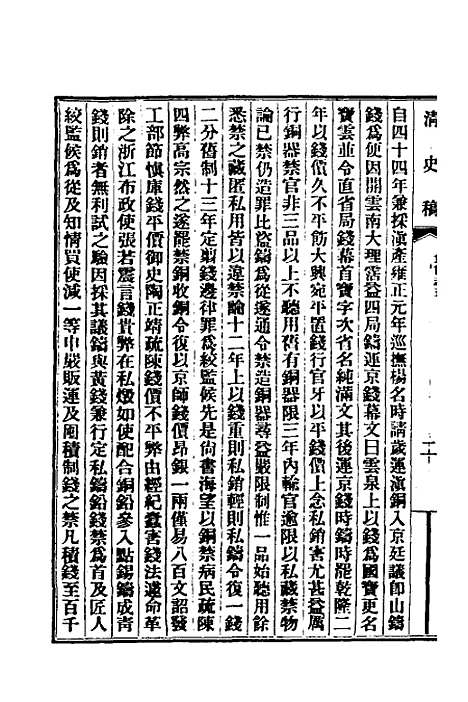 清史稿
自四十四年兼採滇產雍正元年巡撫楊名時請歲運滇銅入京廷議卽山鑄
錢爲便因開雲南大理霑益四局鑄運京錢幕文曰雲泉上以錢爲國寶更名
寶雲並令直省局錢幕首寶字次省名純滿文其後運京錢時鑄時罷乾隆二
年以錢價久不平飭大興宛平置錢行官牙以平錢價上念私銷害尤甚益厲
行銅器禁官非三品以上不聽用舊有銅器限三年內輸官逾限以私藏禁物
論已禁仍造罪比盜鑄爲從遂通令禁造銅器尋益嚴限制惟一品始聽用餘
悉禁之藏匿私用皆以違禁論十二年上以錢重則私銷輕則私鑄令復一錢
二分舊制十三年定剪錢邊律罪爲絞監候先是尙書海望以銅禁病民疏陳
四弊高宗然之遂罷禁銅收銅令復以京師錢價昂銀一兩僅易八百文詔發
工部節愼庫錢平價御史陶正靖疏陳錢價不平弊由經紀蠧害錢法遽命革
除之浙江布政使張若震言錢貴弊在私燬如使配合銅鉛參入點錫鑄成靑
錢則銷者無利試之驗因採其議鑄與黃錢兼行定私鑄鉛錢禁爲首及匠人
絞監候爲從及知情買使減一等申嚴販運及囤積制錢之禁凡積錢至百千